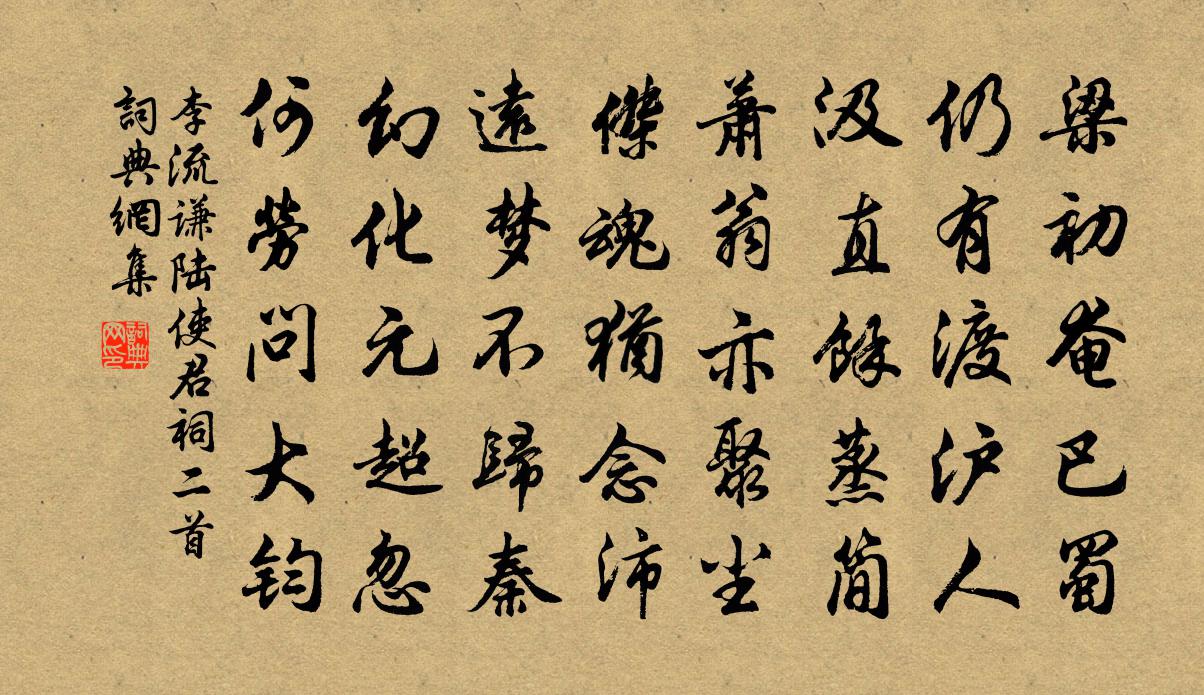 梁初奄巴蜀
仍有渡沪人
汲直餘蒸簡
萧翁亦聚尘
傑魂猶念沛
遠梦不歸秦
幻化元超忽
何勞问大钧
李流谦陆使君祠二首
詞典網集
詞典网印